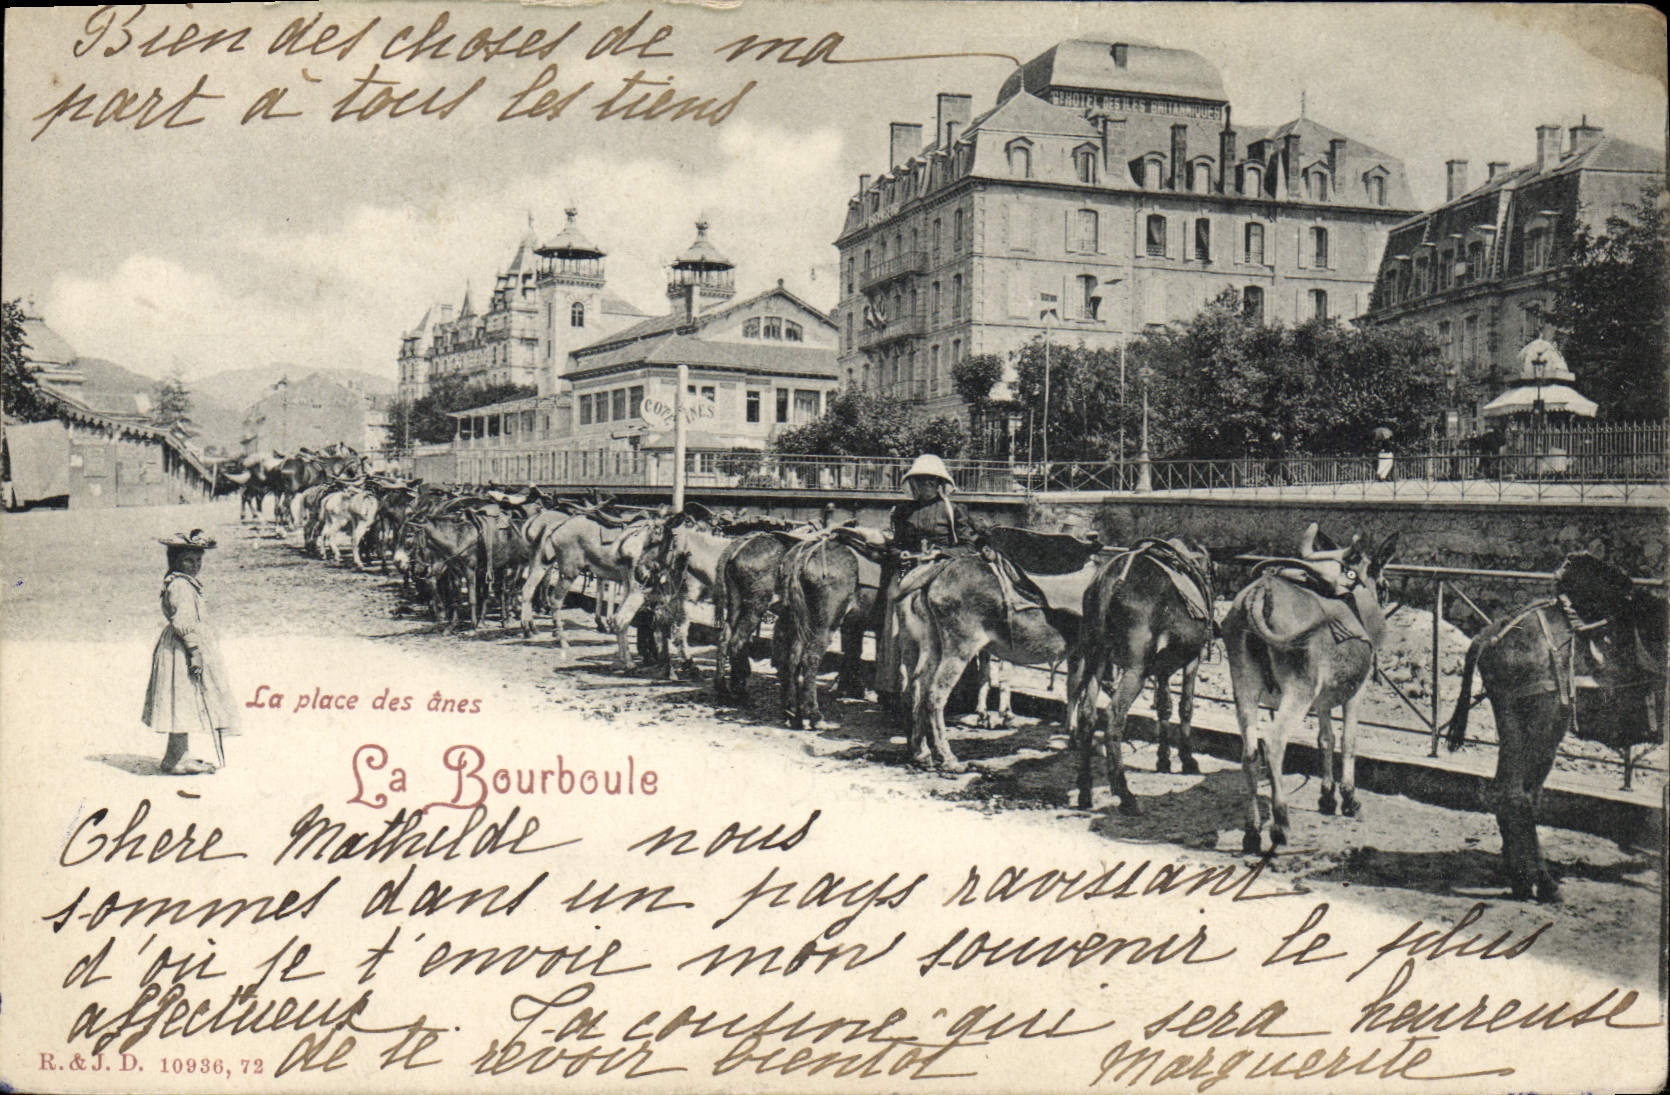 Bien des choses de ma
part à tous les tiens
Gd HOTEL DES ILES BRITANNIQUES
La place des ânes
La Bourboule
Chère Mathilde nous
sommes dans un pays ravissant
d'où je t'envoie mon souvenir le plus
affectueux. Ta cousine qui sera heureuse
de te revoir bientôt Marguerite
R. & J. D. 10936, 72